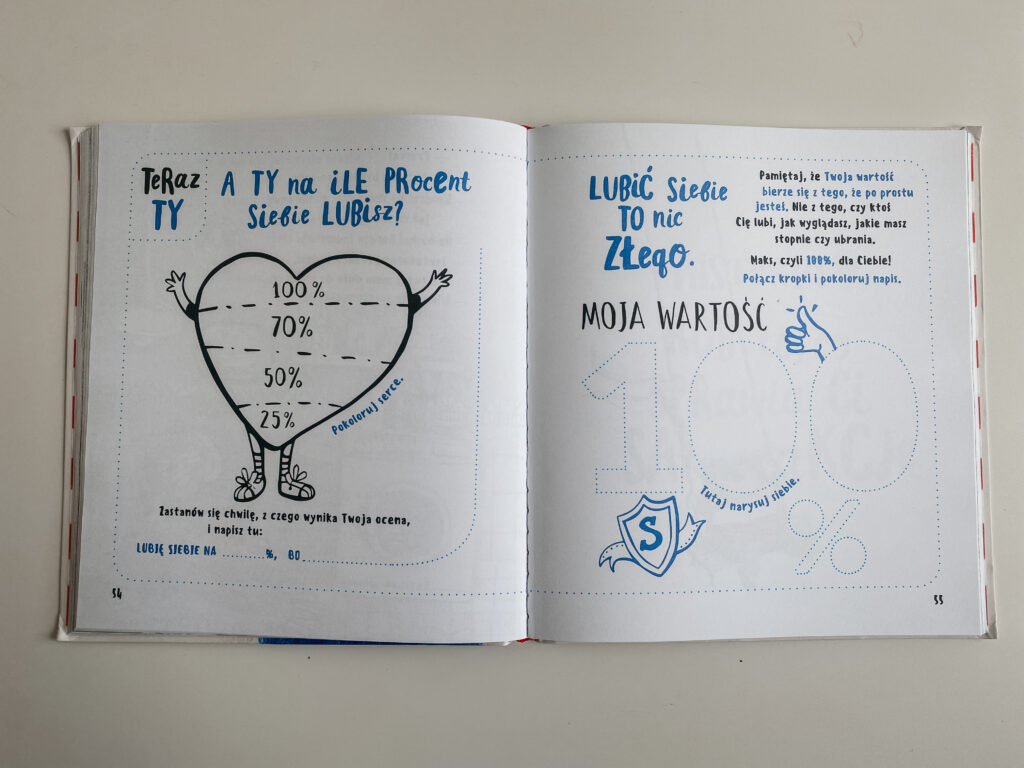 TeRaz
TY
A TY na iLE PRocent
Siebie LUBisz?
100 %
70%
50%
25%
Pokoloruj serce.
Zastanów się chwilę, z czego wynika Twoja ocena,
i napisz tu:
LUBIĘ SIEBIE NA ..........%, BO
54
LUBiĆ Siebie
TO nic
ZŁego.
Pamiętaj, że Twoja wartość
bierze się z tego, że po prostu
jesteś. Nie z tego, czy ktoś
Cię lubi, jak wyglądasz, jakie masz
stopnie czy ubrania.
Maks, czyli 100%, dla Ciebie!
Połącz kropki i pokoloruj napis.
MOJA WARTOŚĆ
100
Tutaj narysuj siebie.
S
%
55